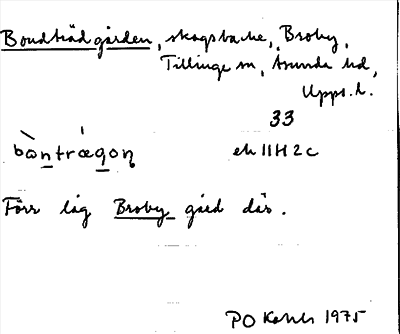 Bondträdgården, skogsbacke, Broby,
Tillinge sn, Åsunda hd,
Upps. l.
33
bòntrǽgoņ ek 11H2c
Förr låg Broby gård där.
PO 1975